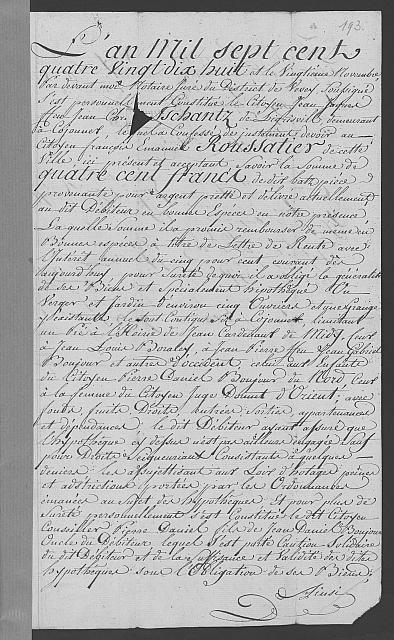 193.
L'an Mil sept cent
quatre Vingt dix huit et le Vingtieme Novembre
Par devant moi Notaire Juré du District de Vevey Soussigné
S'est personnellement Constitué le Citoyen Jean
feu Jean Tschantz de demeurant
à Cojonnex, lequel a Confessé justement devoir au
Citoyen françois Emanuel Roussatier de cette
Ville ici présent et acceptant Savoir la Somme de
quatre cent francs de dix batz pièce
provenante pour argent pretté et délivré actuellement
au dit Débiteur en bonnes Especes en notre présence
Laquelle Somme il a promis rembourser de même en
bonnes especes à titre de Lettre de Rente avec
l'Intérêt annuel du cinq pour cent courant dès
aujourdhuy pour Sureté de quoi il a obligé la généralité
de ses Biens et Spécialement hypothéqué Un
Verger et Jardin d'environ cinq Ouvriers et une grange
y existante le tout Contigus Sis à Cojonnex, limitant
un Pré à de Jean Cardidaut de Midy Cour
à Jean Louis Bovaley, à Jean Pierre feu Jean Gabriel
Bonjour et autres d'occident, celui aux Enfants
du Citoyen Pierre Daniel Bonjour du Nord, Cour
à la femme du Citoyen Juge Dormet d'Orient; avec
fonds, fruits Droits, entrées Sorties, appartenances
et dépendances; le dit Débiteur ayant assuré que
l'hypothèque cy dessus n'est pas ailleurs engagée Sauf
pour Droits Seigneuriaux Consistants à quelques
deniers: les assujettissant aux Loix d'hotages peines
et adstrictions portées par les Ordonnances
émanées au Sujet des hypothèques Et pour plus de
Sureté personnellement s'est Constitué le dit Citoyen
Conseiller Pierre Daniel fils de Jean Daniel Bonjour
Oncle du Débiteur lequel S'est porté Caution Solidaire
du dit Débiteur et de la Suffisance et Validité des dites
hypothèques sous l'Obligation de ses Biens;
Ainsi